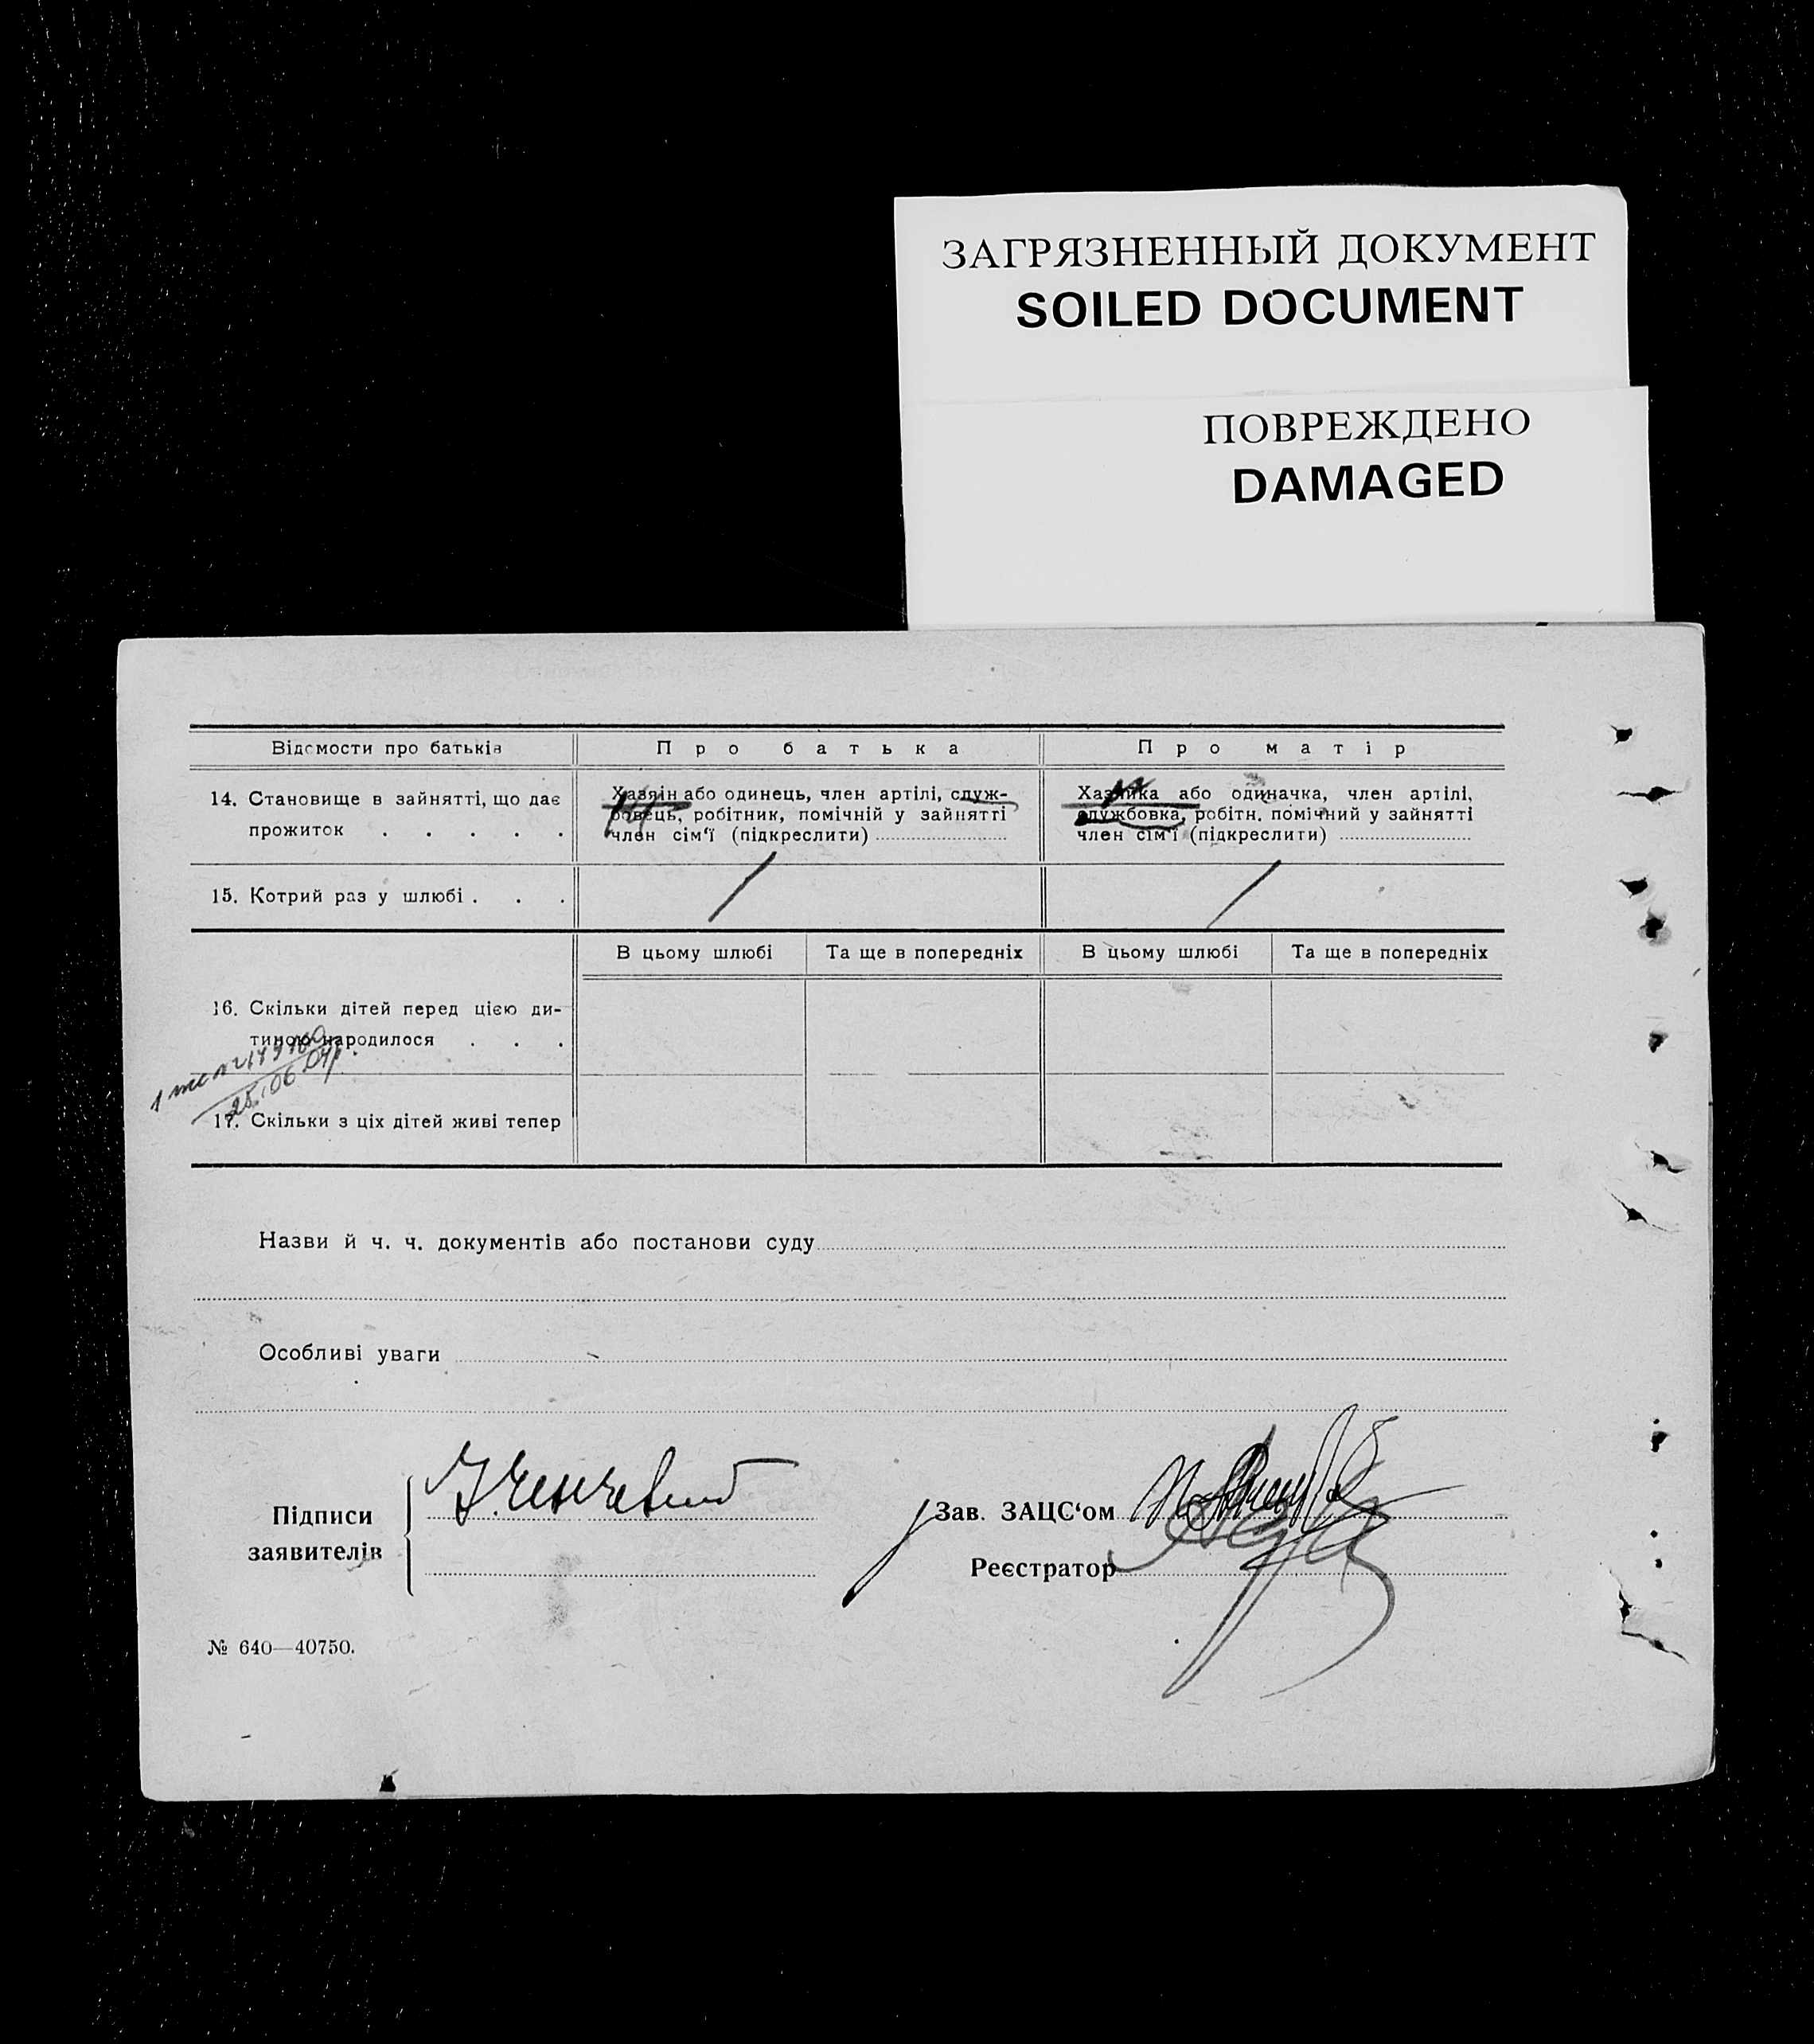 ЗАГРЯЗНЕННЫЙ ДОКУМЕНТ
SOILED DOCUMENT
ПОВРЕЖДЕНО
DAMAGED
Відомости про батьків Про батька Про матір
14. Становище в зайнятті, що дає прожиток . . . . .
Хазяін або одинець, член артілі, служ-
бовець, робітник, помічній у зайнятті
член сім‘ї (підкреслити)
Хазяйка або одиначка, член артілі,
службовка, робітн. помічний у зайнятті
член сім‘ї (підкреслити)
15. Котрий раз у шлюбі . . .
В цьому шлюбі Та ще в попередніх В цьому шлюбі Та ще в попередніх
16. Скільки дітей перед цією ди-
тиною народилося . . .
25.06.04р.
17. Скільки з ціх дітей живі тепер
Назви й ч. ч. документів або постанови суду
Особливі уваги
Підписи
заявителів
Зав. ЗАЦС‘ом
Реєстратор
№ 640—40750.